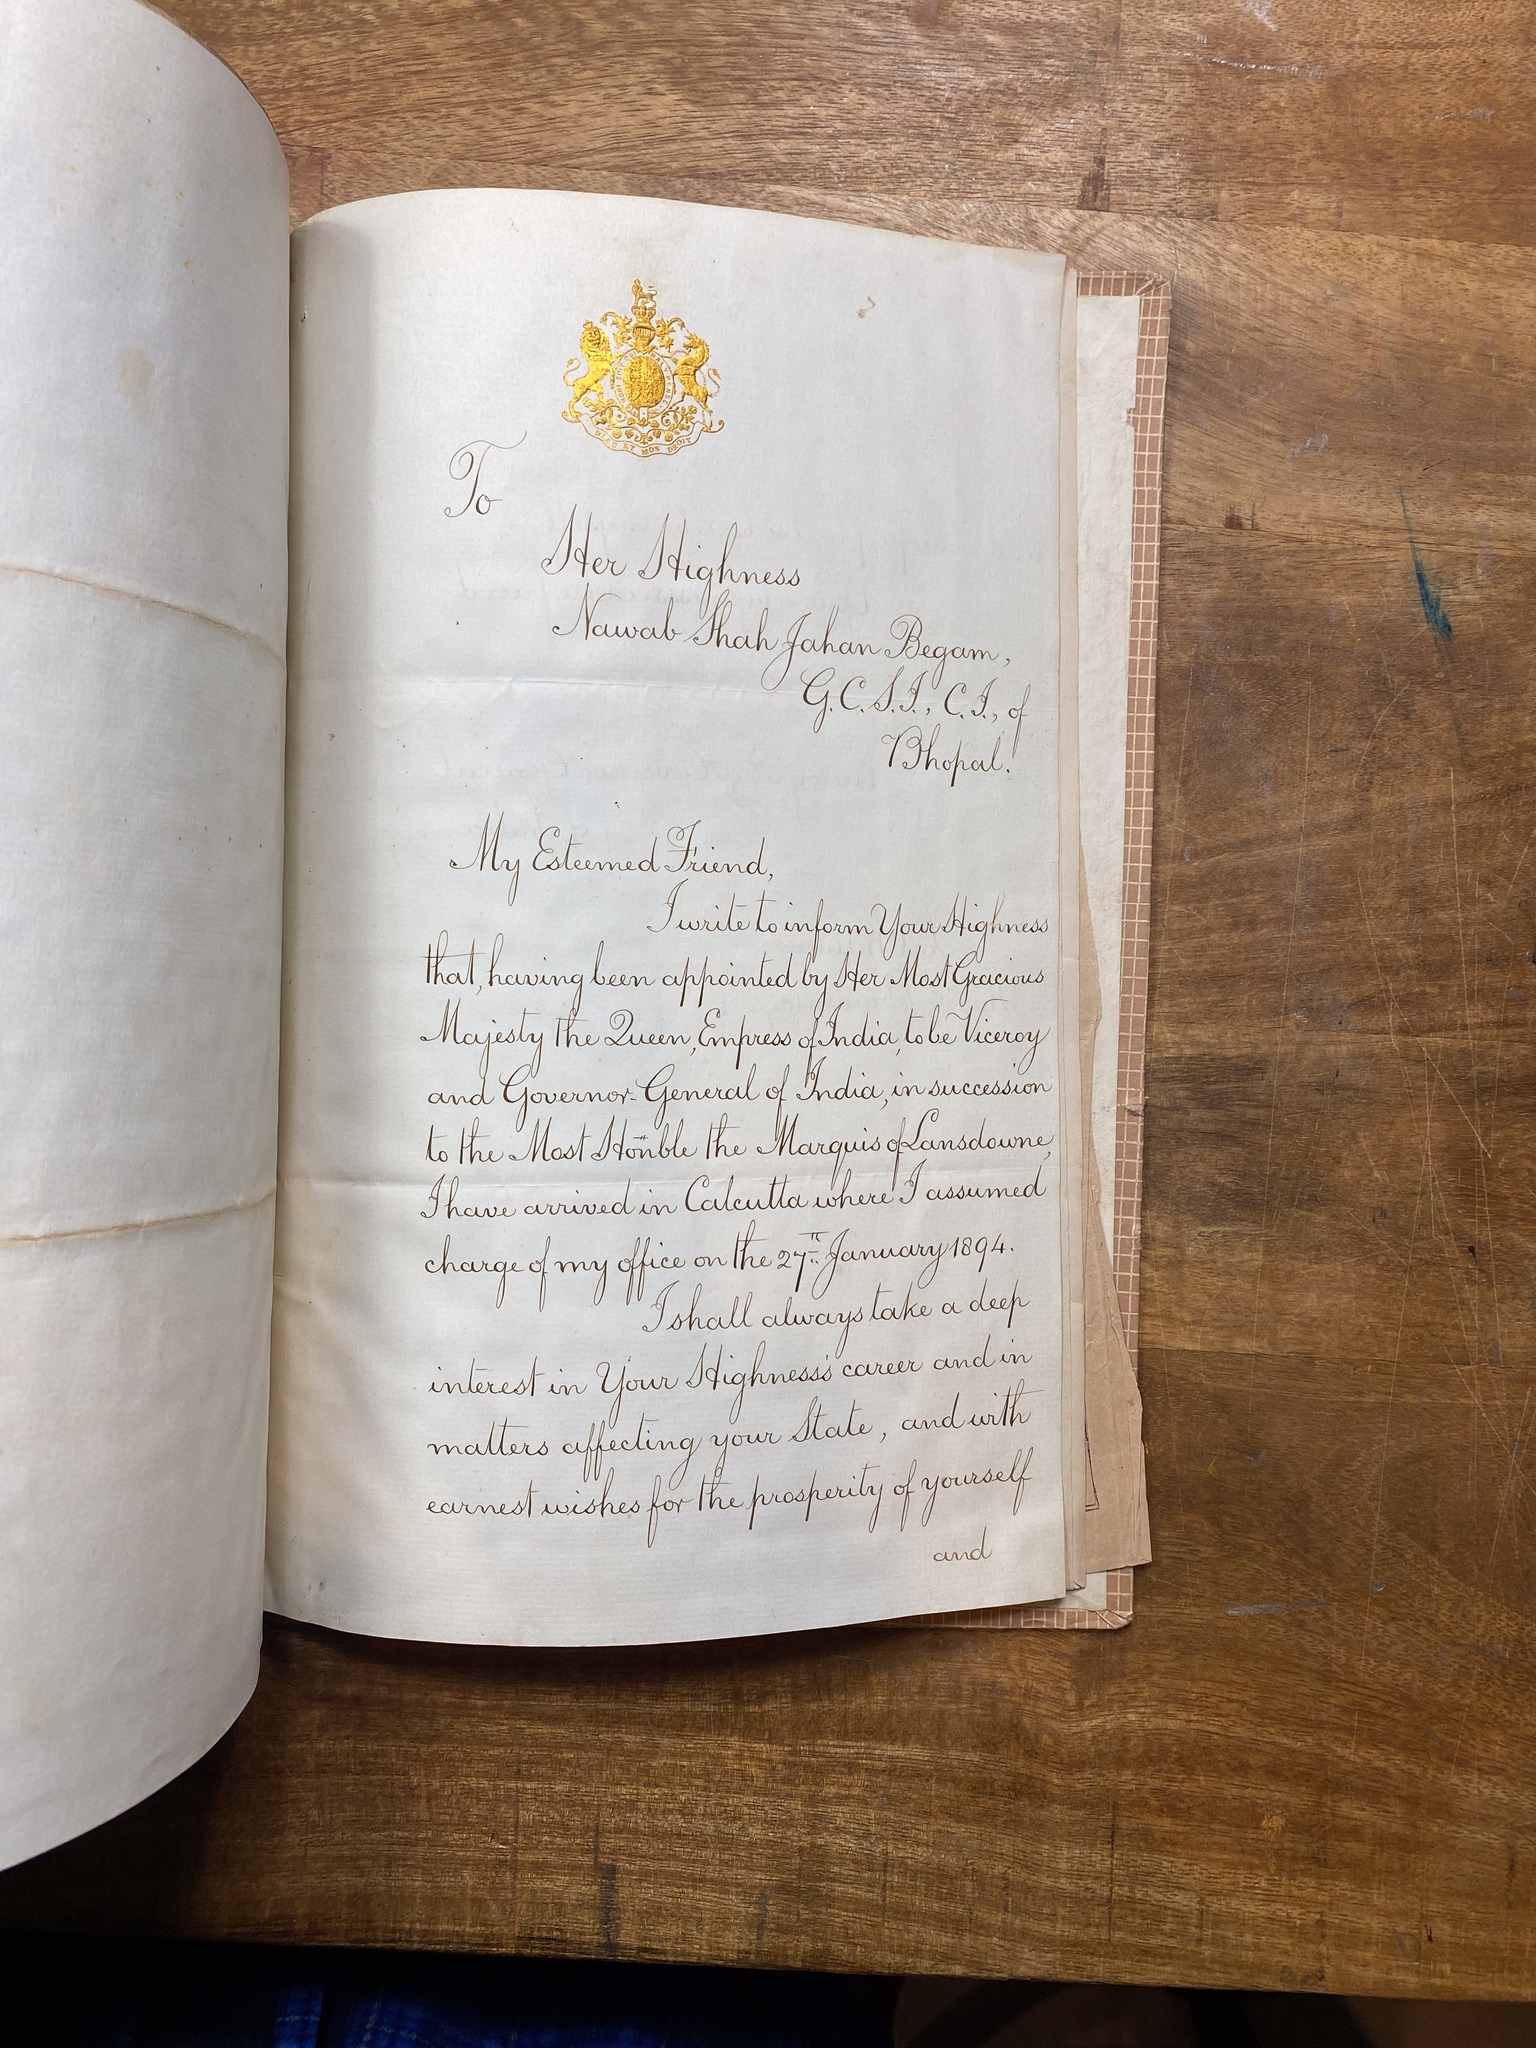 DIEU ET MON DROIT
To
Her Highness
Nawab Shah Jahan Begam,
G.C.S.I., C.I., of
Bhopal.
My Esteemed Friend,
I write to inform Your Highness
that, having been appointed by Her Most Gracious
Majesty the Queen, Empress of India, to be Viceroy
and Governor-General of India, in succession
to the Most Hon'ble the Marquis of Lansdowne,
I have arrived in Calcutta where I assumed
charge of my office on the 27th January 1894.
I shall always take a deep
interest in Your Highness's career and in
matters affecting your State, and with
earnest wishes for the prosperity of yourself
and